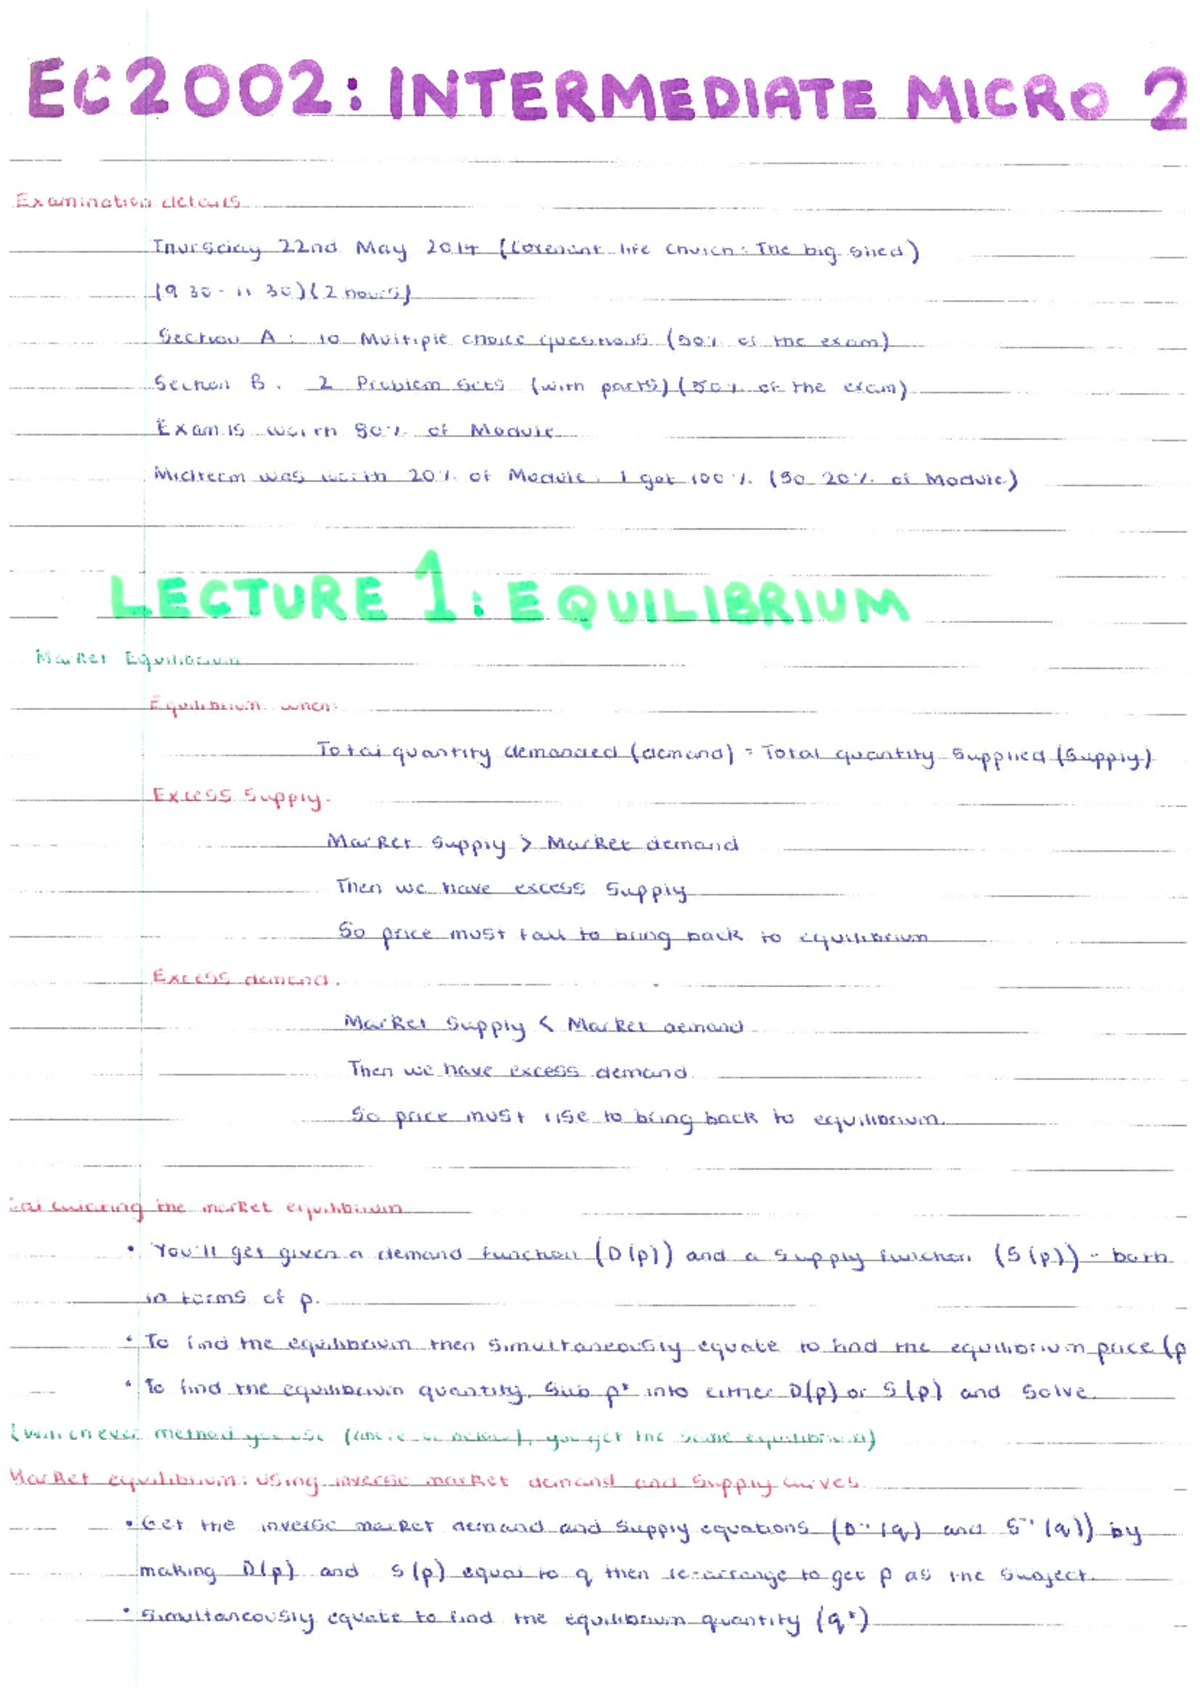 EC2002: INTERMEDIATE MICRO 2
Examination details
Thursday 22nd May 2014 (Covenant life church: The big shed)
(9 30 - 11 30) (2 hours)
Section A: 10 Multiple choice questions (50% of the exam)
Section B. 2 Problem sets (with parts) (50% of the exam)
Exam is worth 80% of Module
Midterm was worth 20% of Module. I got 100% (So 20% of Module)
LECTURE 1: EQUILIBRIUM
Market Equilibrium
Equilibrium when:
Total quantity demanded (demand) = Total quantity supplied (Supply)
Excess Supply.
Market Supply > Market demand
Then we have excess Supply
So price must fall to bring back to equilibrium
Excess demand.
Market Supply < Market demand
Then we have excess demand
So price must rise to bring back to equilibrium.
Calculating the market equilibrium
• You'll get given a demand function (D(p)) and a Supply function (S(p)) - both
in terms of p.
• To find the equilibrium then simultaneously equate to find the equilibrium price (p
• To find the equilibrium quantity, Sub p* into either D(p) or S(p) and Solve.
(Whichever method you use (above or below), you get the same equilibrium)
Market equilibrium: using inverse market demand and Supply curves
• Get the inverse market demand and Supply equations (D⁻¹(q) and S⁻¹(q)) by
making D(p) and S(p) equal to q then re-arrange to get p as the subject.
• Simultaneously equate to find the equilibrium quantity (q*)